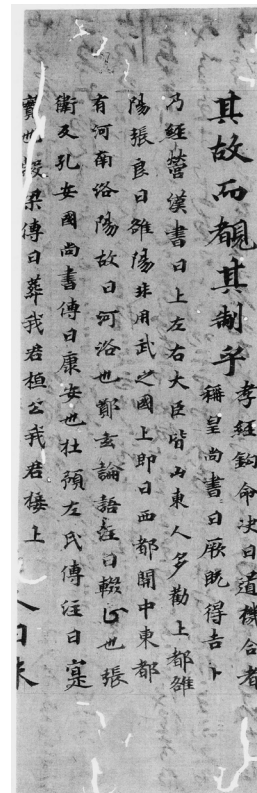 其故而覩其制乎
孝經鈎命決曰道機合者
稱皇尚書曰厥既得吉卜
乃經營漢書曰上左右大臣皆山東人多勸上都雒
陽張良曰雒陽非用武之國上即日西都開中東都
有河南洛陽故曰河洛也鄭玄論語注曰輟止也張
衡及孔安國尚書傳曰康安也杜預左氏傳注曰寔
實也穀梁傳曰葬我君桓公我君接上
人曰未